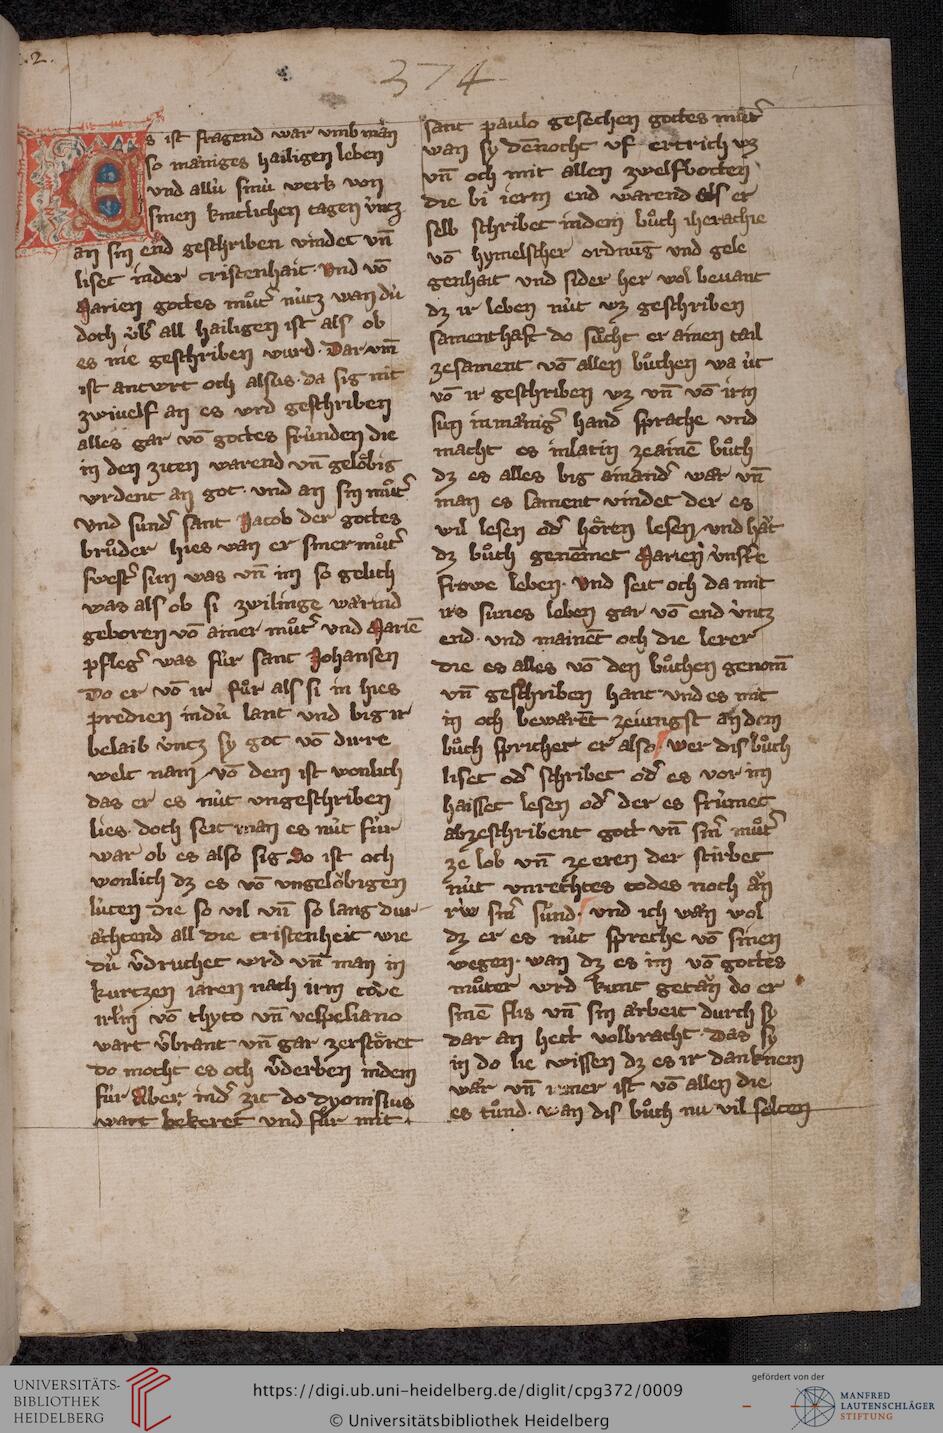 .2.
374
Es ist fragend war vmb man
so maniges hailigen leben
vnd allú sinú werk von
sinen kintlichen tagen vntz
an sin end geschriben vindet vn̄
liset inder cristenhait. Vnd vō
Marien gottes můt͛ nútz wan dú
doch úb͛ all hailigen ist als ob
es nie geschriben wurd. Dar vm̄
ist antwrt och alsus. da sig nit
zwiuelf an es wrd geschriben
alles gar vō gottes frúnden die
in den ziten warend vn̄ gelǒbig
wrdent an got. vnd an sin můt͛
Vnd sund͛ sant Jacob der gottes
brůder hies wan er siner můt͛
swest͛ sun was vn̄ im so gelich
was als ob si zwilinge warind
geboren vō ainer můt͛ vnd Mariē
pfleg͛ was fúr sant Johansen
Do er vō ir fůr als si in hies
predien indú lant vnd big ir
belaib vntz sy got vō dirre
welt nam vō dem ist wonlich
das er es nút vngeschriben
lies. doch seit man es nút fúr
war ob es also sig So ist och
wonlich dz es vō vngelǒbigen
lúten die so vil vn̄ so lang dur
achtend all die cristenheit wie
dú v͛druchet wrd vn̄ man in
kurtzen iaren nach irm tode
irl͛m vō thyto vn̄ vespesiano
wart v͛brant vn̄ gar zerstöret
do mocht es och v͛derben indem
fúr Aber ind͛ zit do dyonisius
wart bekeret vnd fůr mit
sant paulo gesechen gottes můt͛
wan sy dēnocht vf ertrich wz
vn̄ och mit allen zwelfbotten
die bi ierm end warend als er
selb schribet indem bůch iherachie
vō hymelscher ordnūg vnd gele
genhait vnd sider her wol bevant
dz ir leben nút wz geschriben
samenthaft do sůcht er ainen tail
zesament vō allen bůchen wa út
vō ir geschriben wz vn̄ vō irm
sun in manig͛ hand sprache vnd
macht es inlatin zeainē bůch
dz es alles big ainand͛ war vn̄
man es sament vindet der es
wil lesen od͛ hǒren lesen vnd hat
dz bůch genōmet Marien vnsr͛e
frowe leben. Vnd seit och da mit
irs sunes leben gar vō end vntz
end. vnd mainēt och die lerer
die es alles vō den bůchen genom̄
vn̄ geschriben hant vnd es mit
in och bewarēt zeiungst an dem
bůch spricher er also wer dis bůch
liset od͛ schribet od͛ es vor im
haisset lesen od͛ der es frúmet
abzeschribent gott vn̄ sin͛ můt͛
ze lob vn̄ ze eren der stirbet
nút vnrechtes todes noch an
rúw sin͛ sund. vnd ich wan wol
dz er es nút spreche vō sinen
wegen. wan dz es im vō gottes
můter wrd kunt getan do er
sinē flis vn̄ sin arbeit durch sy
dar an hett volbracht. Das sy
in do lie wissen dz es ir danknem
war vn̄ iemer ist vō allen die
es tůnd. wan dis bůch nu vil selten
UNIVERSITÄTS-
BIBLIOTHEK
HEIDELBERG
https://digi.ub.uni-heidelberg.de/diglit/cpg372/0009
© Universitätsbibliothek Heidelberg
gefördert von der
MANFRED
LAUTENSCHLÄGER
STIFTUNG